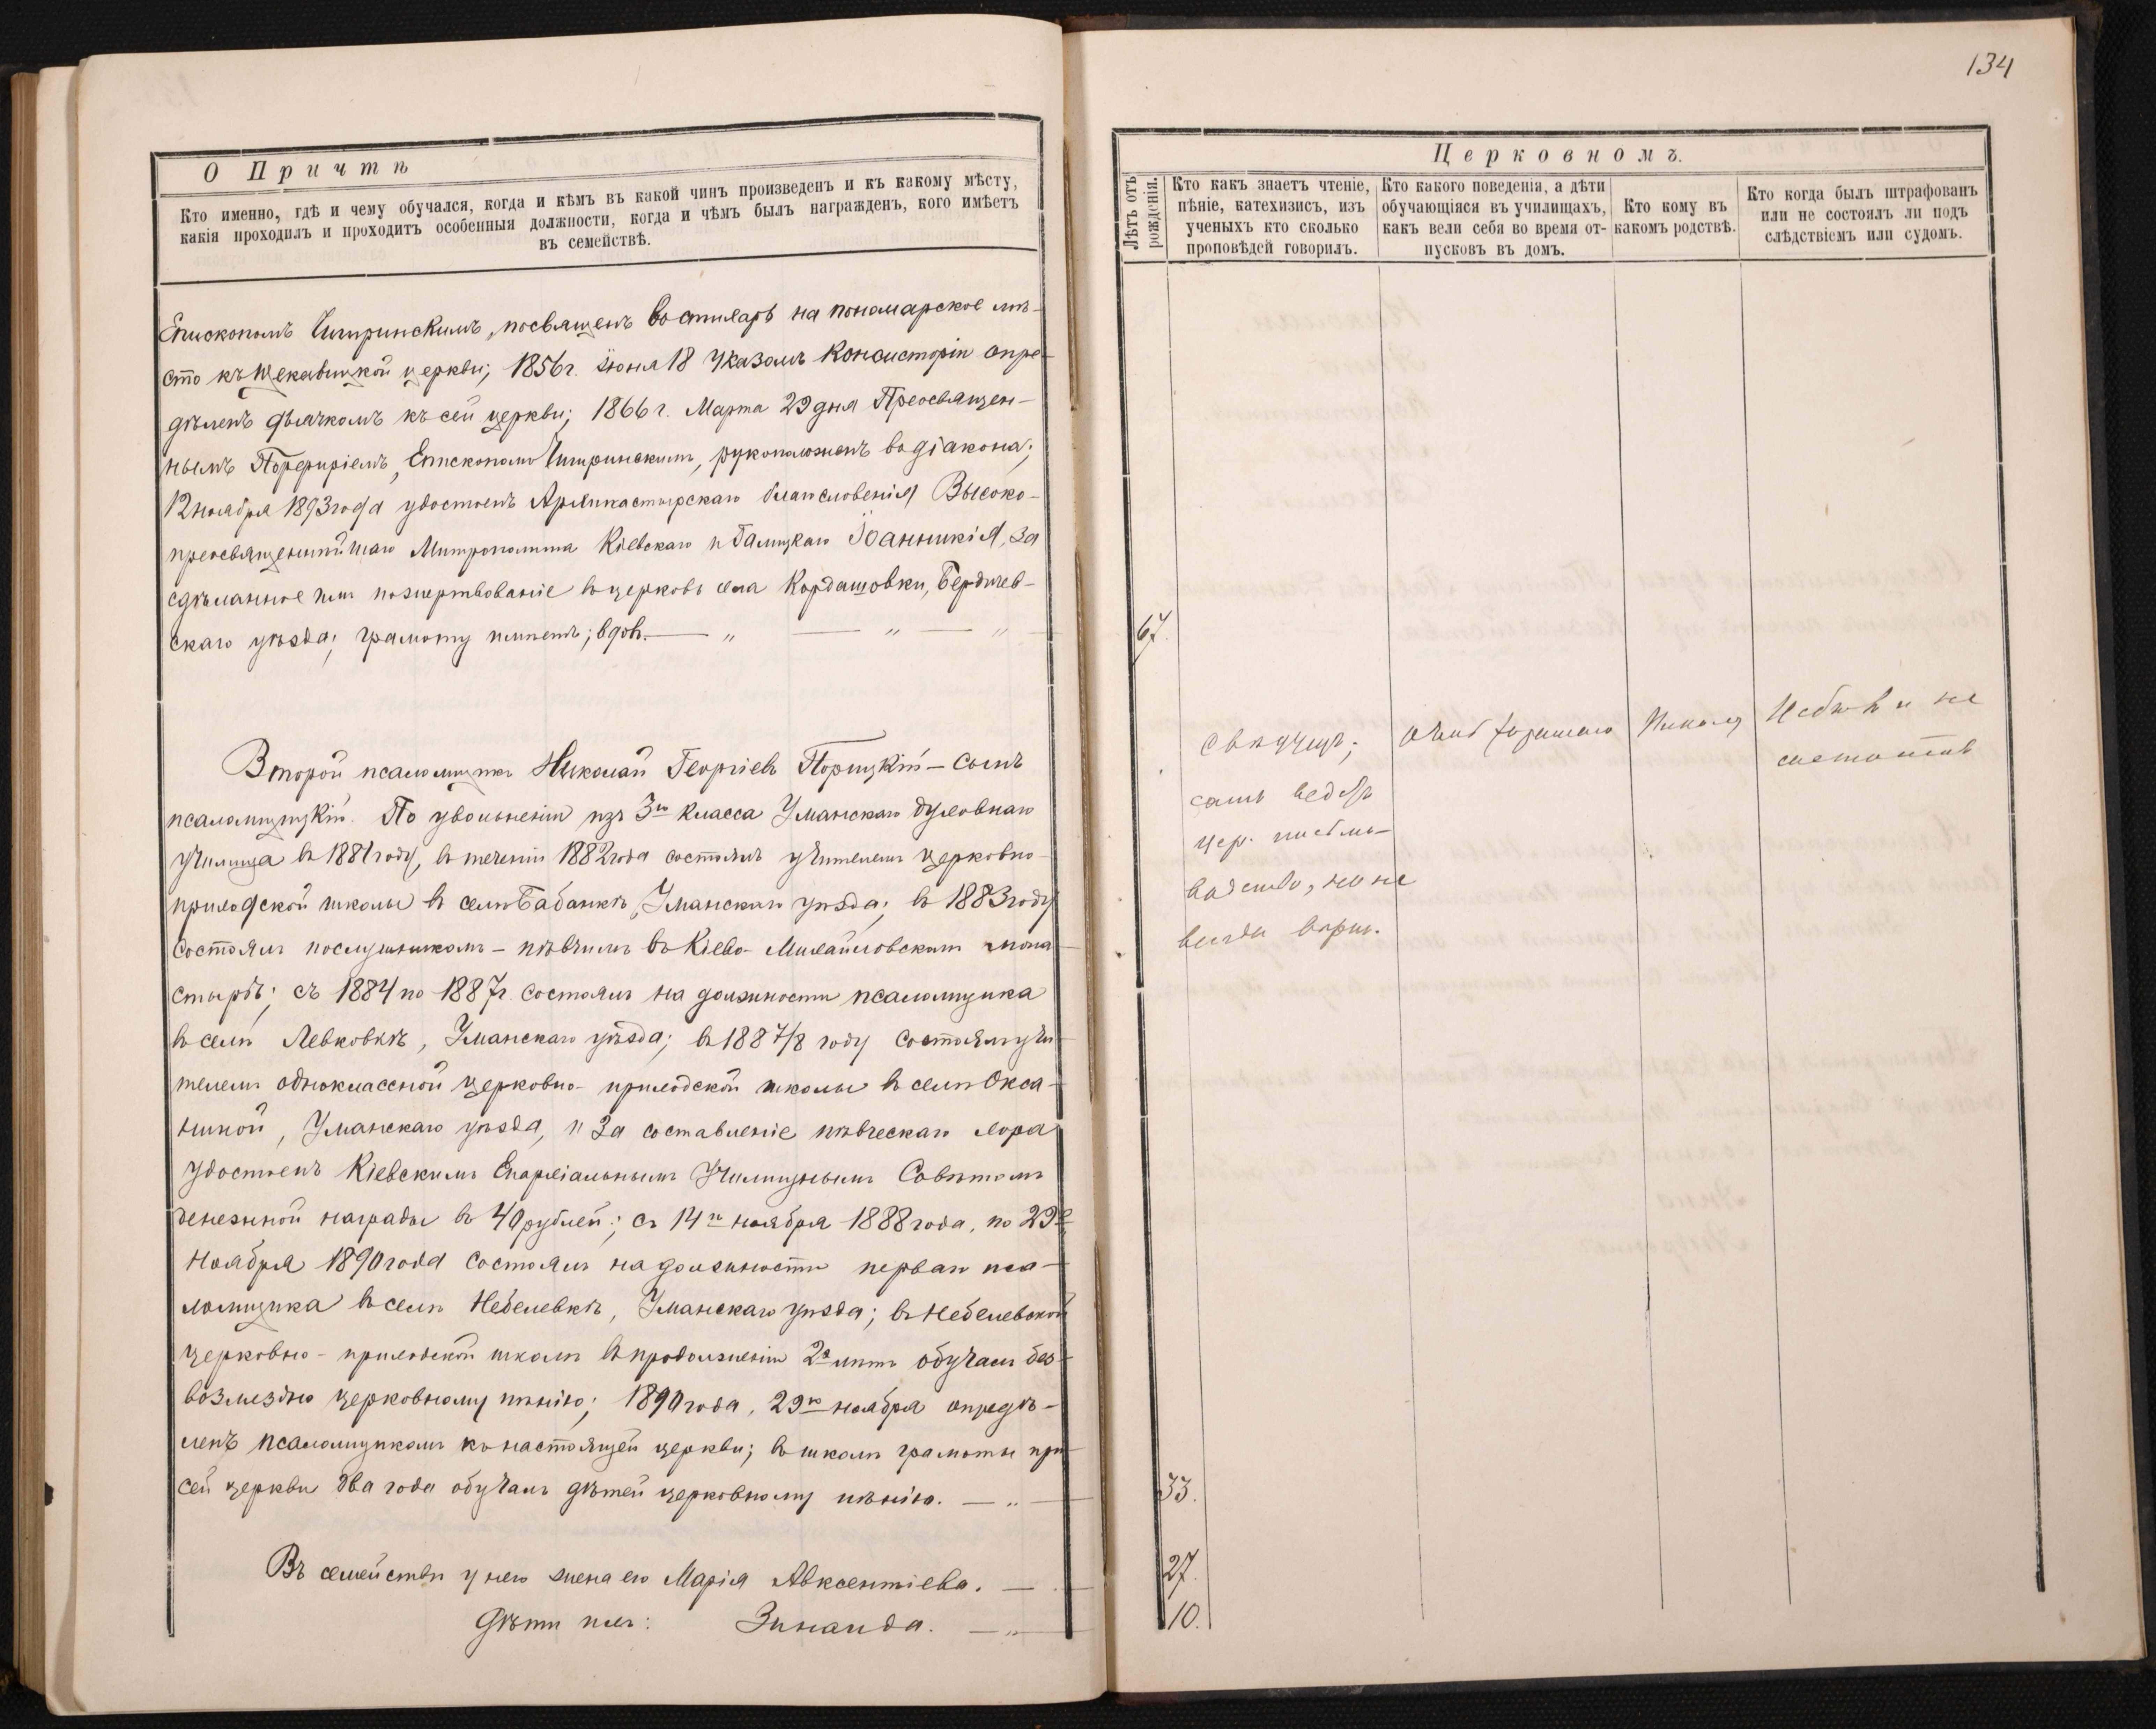 О Причтѣ
Кто именно, гдѣ и чему обучался, когда и кѣмъ въ какой чинъ произведенъ и къ какому мѣсту,
какія проходилъ и проходитъ особенныя должности, когда и чѣмъ былъ награжденъ, кого имѣетъ
въ семействѣ.
Епископомъ Чигиринскимъ, посвященъ во стихарь на пономарское мѣ-
сто къ Щекавицкой церкви; 1856 г. Іюня 18 Указомъ Консисторіи опре-
дѣленъ дьячкомъ къ сей церкви; 1866 г. Марта 29 дня Преосвящен-
нымъ Порфиріемъ, Епископомъ Чигиринскимъ, рукоположенъ во діакона;
12 ноября 1893 года удостоенъ Архипастырскаго благословенія Высоко-
преосвященнѣйшаго Митрополита Кіевскаго и Галицкаго Іоанникія, за
сдѣланное имъ пожертвованіе въ церковь села Кордашовки, Бердичев-
скаго уѣзда; грамоту имѣетъ; вдовъ. — " — " — "
Второй псаломщикъ Николай Георгіевъ Порицкій – сынъ
псаломщицкій. По увольненіи изъ 3го класса Уманскаго духовнаго
училища въ 1881 году, въ теченіи 1882 года состоялъ учителемъ церковно-
приходской школы въ селѣ Бабанкѣ, Уманскаго уѣзда; въ 1883 году
состоялъ послушникомъ – пѣвчимъ въ Кіево-Михайловскомъ мона-
стырѣ; съ 1884 по 1887 г. состоялъ на должности псаломщика
въ селѣ Левковкѣ, Уманскаго уѣзда; въ 1887/8 году состоялъ учи-
телемъ одноклассной церковно-приходской школы въ селѣ Окса-
ниной, Уманскаго уѣзда, и за составленіе пѣвческаго хора
удостоенъ Кіевскимъ Епархіальнымъ Училищнымъ Совѣтомъ
денежной награды въ 40 рублей; съ 14го ноября 1888 года, по 29е
Ноября 1890 года состоялъ на должности перваго пса-
ломщика въ селѣ Небелевкѣ, Уманскаго уѣзда; въ Небелевской
церковно-приходской школѣ въ продолженіи 2х лѣтъ обучалъ без-
возмездно церковному пѣнію; 1890 года, 29го ноября опредѣ-
ленъ псаломщикомъ къ настоящей церкви; въ школѣ грамоты при
сей церкви два года обучалъ дѣтей церковному пѣнію. — " —
Въ семействѣ у него жена его Марія Авксентіева. —
Дѣти ихъ: Зинаида. — " —
134
Церковномъ.
Лѣтъ отъ рожденія.
Кто какъ знаетъ чтеніе,
пѣніе, катехизисъ, изъ
ученыхъ кто сколько
проповѣдей говорилъ.
Кто какого поведенія, а дѣти
обучающіяся въ училищахъ,
какъ вели себя во время от-
пусковъ въ домъ.
Кто кому въ
какомъ родствѣ.
Кто когда былъ штрафованъ
или не состоялъ ли подъ
слѣдствіемъ или судомъ.
67.
самъ ведетъ
цер. письмо-
водство, но не
всегда
очень хорошаго
Никому
Не былъ и не
состоитъ
33.
27.
10.